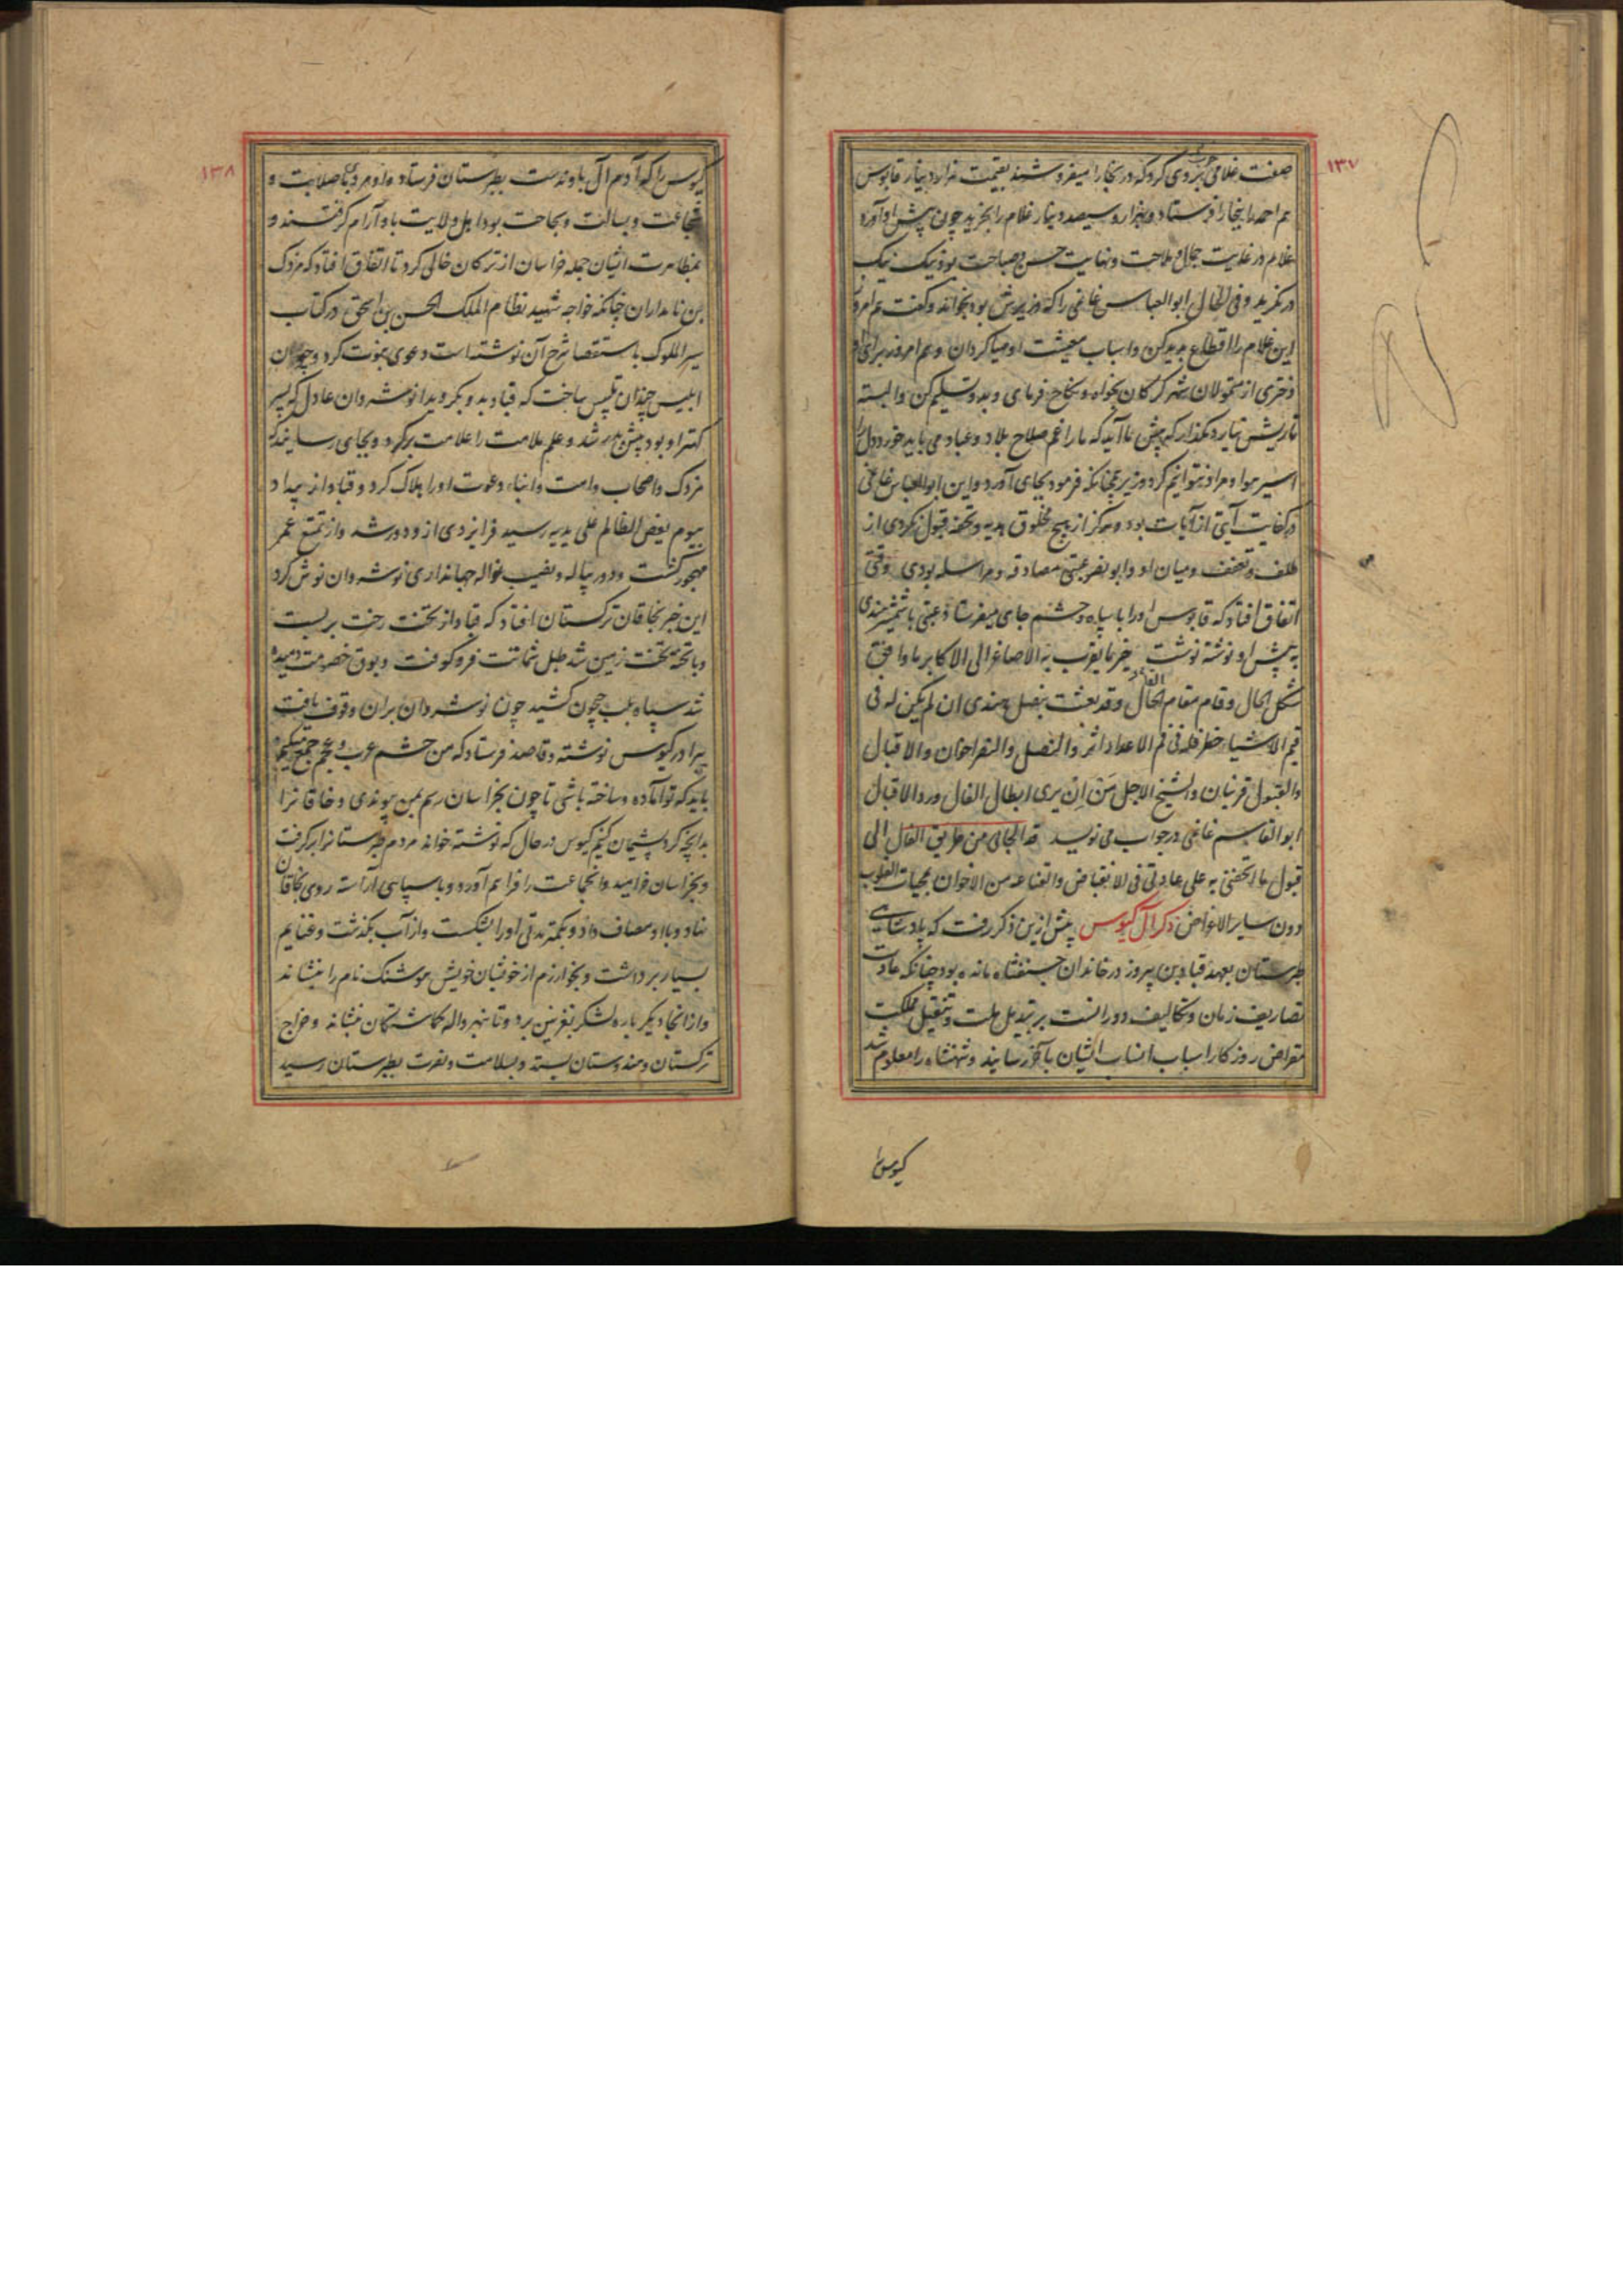 ۱۳۷
صفت غلامی بروی کرد که در بخارا میفروشند بقیمت هزار دینار قابوس
هم احمد را ببخارا فرستاد و بهزار و سیصد دینار غلام را بخرید چون پیش او آورد
غلام در غایت جمال و ملاحت و نهایت حسن و صباحت بود نیک نیک
در نگرید و فی الحال ابوالعباس غانمی را که وزیرش بود بخواند و گفت هم امروز
این غلام را اقطاع پدید کن و اسباب معیشت او مهیا گردان و هم امروز برای او
دختری از متمولان شهر گرگان بخواه و نکاح فرمای و بدو تسلیم کن و البته
تا ریشش نیارد مگذار که پیش ما آید که ما را غم صلاح بلاد و عباد می باید خورد و دل را
اسیر هوا و مراد نتوانیم کرد وزیر همچنانکه فرمود بجای آورد و این ابوالعباس غانمی
در کفایت آیتی از آیات بود و هرگز از هیچ مخلوق هدیه و تحفه قبول نکردی از
ظلف و تعفف و میان او و ابو نصر عتبی مصادقه و مراسله بودی وقتی
اتفاق افتاد که قابوس او را با سپاه و حشم جای میفرستاد عتبی با شمشیر هندی
به پیش او نوشته نوشت خیر ما یقرب به الاصاغر الی الاکابر ما وافق
شکل الحال و قام مقام الفال و قد بعثت بنصل هندی ان لم یکن له فی
قیم الاشیاء خطر فله فی قمم الاعداء اثر والنصل والنصر اخوان والاقبال
والقبول قرینان والشیخ الاجل من ان یری ابطال الفال ورد الاقبال
ابوالقاسم غانمی در جواب می نویسد قد الجانی من طریق الفال الی
قبول ما اتحفنی به علی عادتی فی الانقباض والقناعة من الاخوان بمحبات القلوب
دون سایر الاعراض ذکر آل کیوس پیش ازین ذکر رفت که پادشاهی
طبرستان بعهد قباد بن پیروز در خاندان جسنفشاه مانده بود چنانکه عادت
تصاریف زمان و تکالیف دورانست بر تبدیل ملت و تنقیل مملکت
مقراض روزگار اسباب انساب ایشان بآخر رسانید و شهنشاه را معلوم شد
کیوس را
۱۳۸
کیوس را که آدم آل باوندست بطبرستان فرستاد و او مردی با صلابت و
شجاعت و بسالت و نجاحت بود اهل ولایت باو آرام گرفتند و
بمظاهرت ایشان جمله خراسان از ترکان خالی کرد تا اتفاق افتاد که مزدک
بن نامداران چنانکه خواجه شهید نظام الملک الحسن بن اسحق در کتاب
سیر الملوک باستقصا شرح آن نوشته است دعوی نبوت کرد و چون
ابلیس چندان تلبیس ساخت که قباد بدو بگروید انوشروان عادل که پسر
کهتر او بود پیش پدر شد و علم ملامت را علامت برکرد و بجای رسانید که
مزدک و اصحاب و امت و اتباع دعوت او را هلاک کرد و قباد از بیداد
بیوم یعض الظالم علی یدیه رسید فر ایزدی ازو دور شد و از تمتع عمر
مهجور گشت و دور پیاله و نصیب نواله جهانداری نوشروان نوش کرد
این خبر بخاقان ترکستان افتاد که قباد از تخت رخت بر بست
و با تخته تخت زمین شد طبل شماتت فرو کوفت و بوق خصومت دمیده
شد سپاه بلب جیحون کشید چون نوشروان بران وقوف یافت
ببرادر کیوس نوشته و قاصد فرستاد که من حشم عرب و عجم جمع میکنم
باید که تو آماده و ساخته باشی تا چون بخراسان رسم بمن پیوندی و خاقانرا
بدانچه کرد پشیمان کنیم کیوس در حال که نوشته خواند مردم طبرستانرا برگرفت
و بخراسان خرامید و آنجماعت را فراهم آورد و با سپاهی آراسته روی بخاقان
نهاد و با او مصاف داد و بکمتر مدتی او را بشکست و از آب بگذشت و غنایم
بسیار برداشت و بخوارزم از خویشان خویش هوشنگ نام را بنشاند
و از آنجا دیگر باره لشکر بغزنین برد و تا نهرواله گماشتگان نشانده و خراج
ترکستان و هندوستان بسته و بسلامت و نصرت بطبرستان رسید